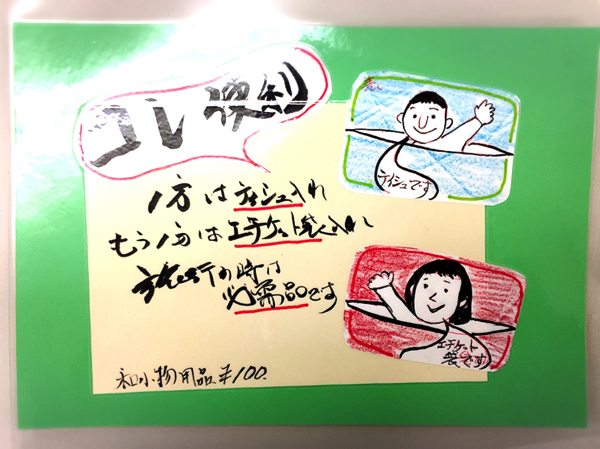 コレ便利
1方はティシュ入れ
もう1方はエチケット袋入れ
旅行の時は
必需品です
和小物用品¥100.
ティシュです
エチケット
袋です